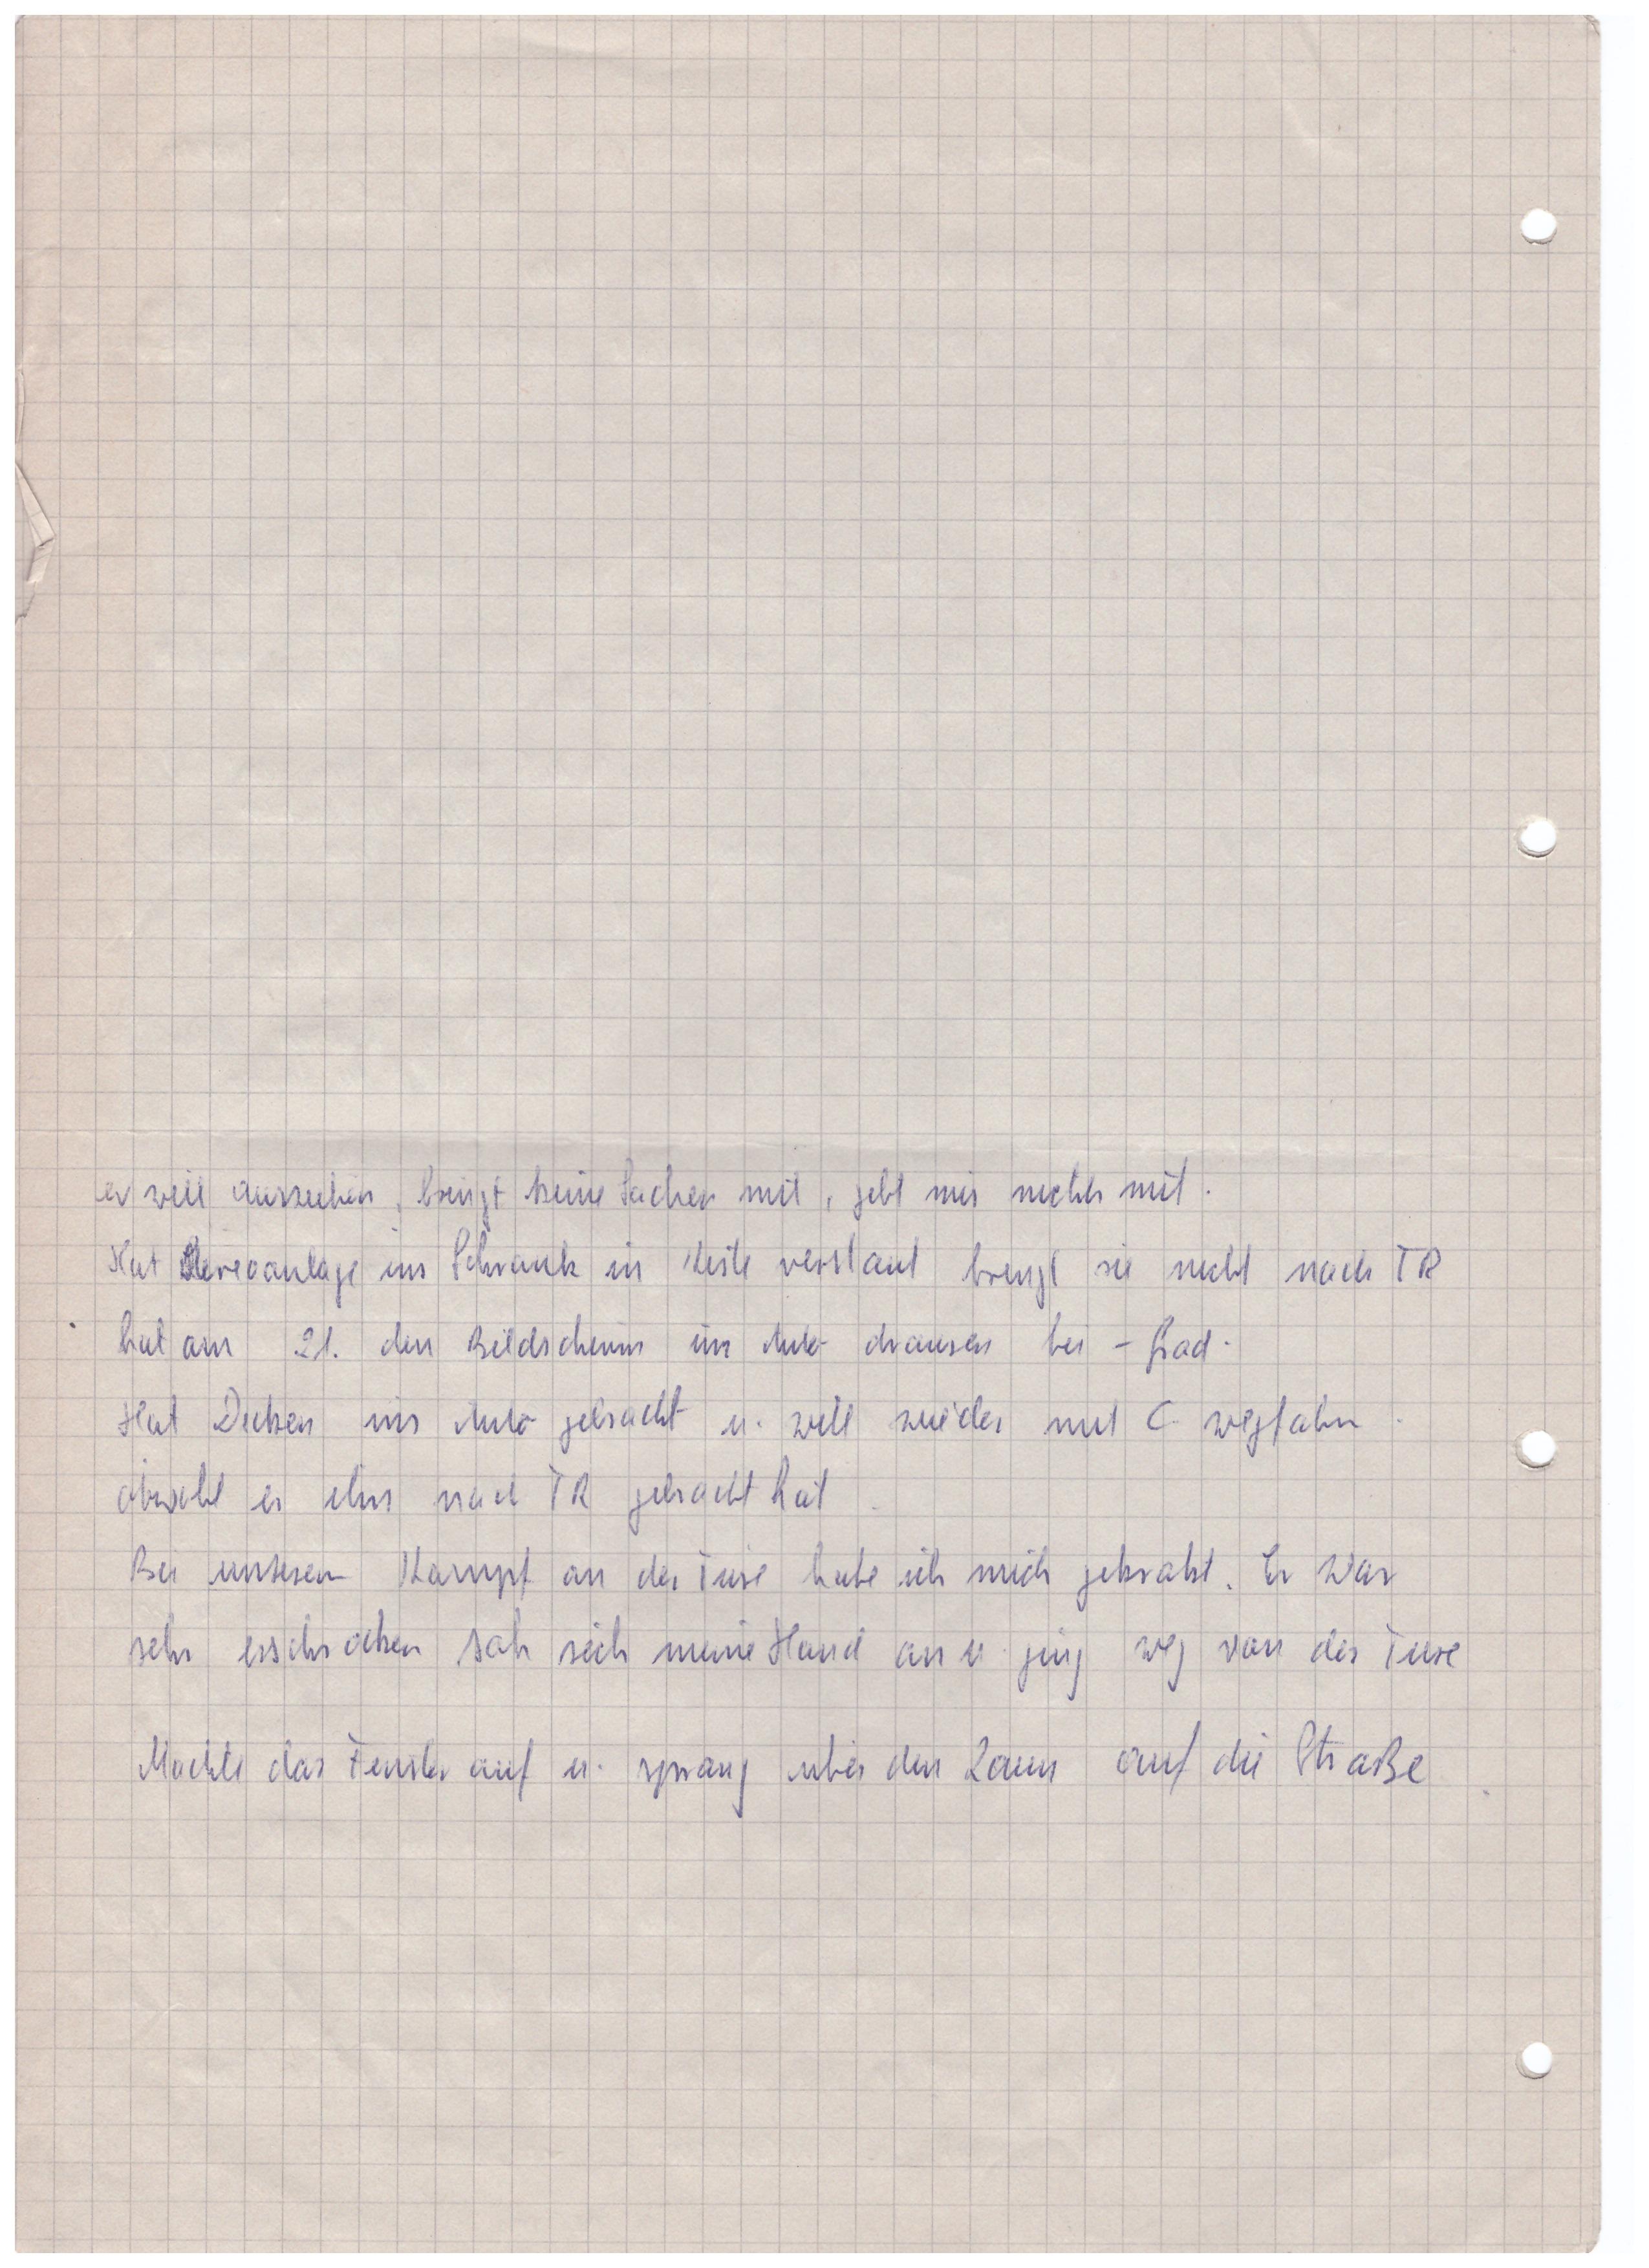 er will ausziehen, bringt keine Sachen mit, gebt mir nichts mit.
Hat Stereoanlage im Schrank in Kiste verstaut bringt sie nicht nach TR
hat am 21. den Bildschirm im Auto drausen bei - Grad.
Hat Decken ins Auto gebracht u. will wieder mit C. wegfahrn.
obwohl er ihn nach TR gebracht hat.
Bei unserem Kampf an der Türe habe ich mich gekratzt. Er war
sehr erschrocken sah sich meine Hand an u. ging weg von der Türe
Machte das Fenster auf u. sprang über den Zaun auf die Straße